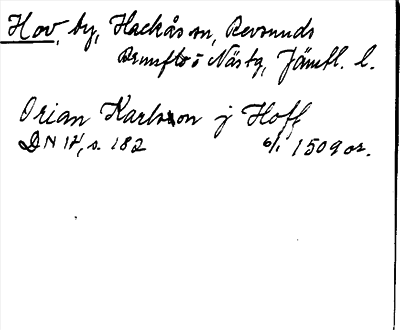 Hov, by, Hackås sn, Revsunds
Brunflo o Näs tg, Jämtl. l.
Orian Karlsson j Hoff
DN 14, s. 182 6/1 1509 or.